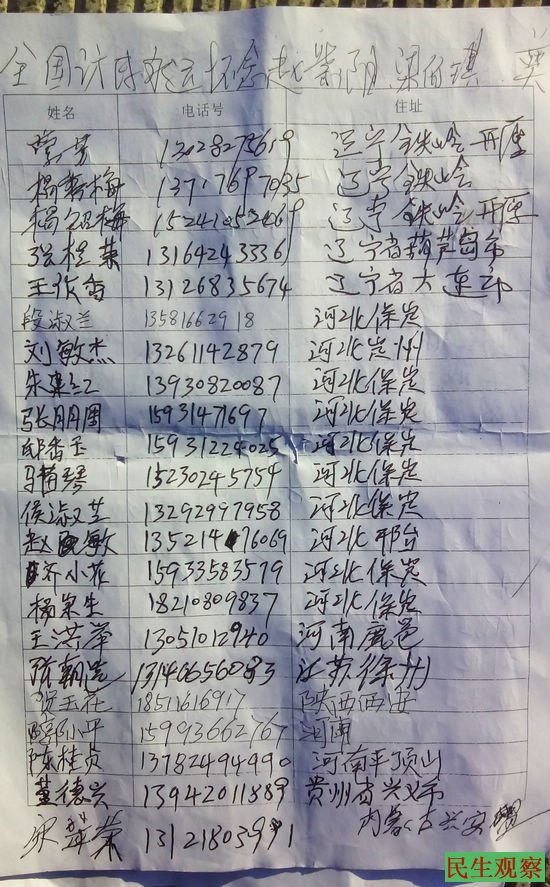 全国访民 怀念赵紫阳 梁 琪
姓名 电话号 住址
辽宁铁岭开原
杨 梅 辽宁铁岭
杨 梅 辽宁铁岭开原
张桂荣 13164243336 辽宁省葫芦岛市
王 香 13126835674 辽宁省大连市
段淑兰 13581662918 河北保定
刘敏杰 13261142879 河北定州
朱 红 13930820087 河北保定
张朋周 15931471697 河北保定
邱香玉 15931224025 河北保定
马 琴 15230245754 河北保定
侯淑芝 13292997958 河北保定
赵 敏 13521476069 河北邢台
齐小花 15933583579 河北保定
杨宗生 18210809837 河北保定
王洪举 13051012940 河南鹿邑
13146656083 江苏徐州
贺玉花 18511616917 陕西西安
小平 15993662767 河南
陈桂贞 13782494490 河南平顶山
董德兴 13942011889 贵州省兴义市
宋 荣 13121803991 内蒙古兴安盟
民生观察